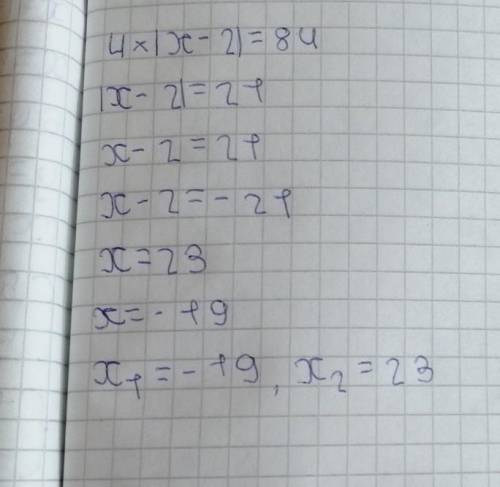 4×|x-2|=84
|x-2|=21
x-2=21
x-2=-21
x=23
x=-19
x₁=-19, x₂=23